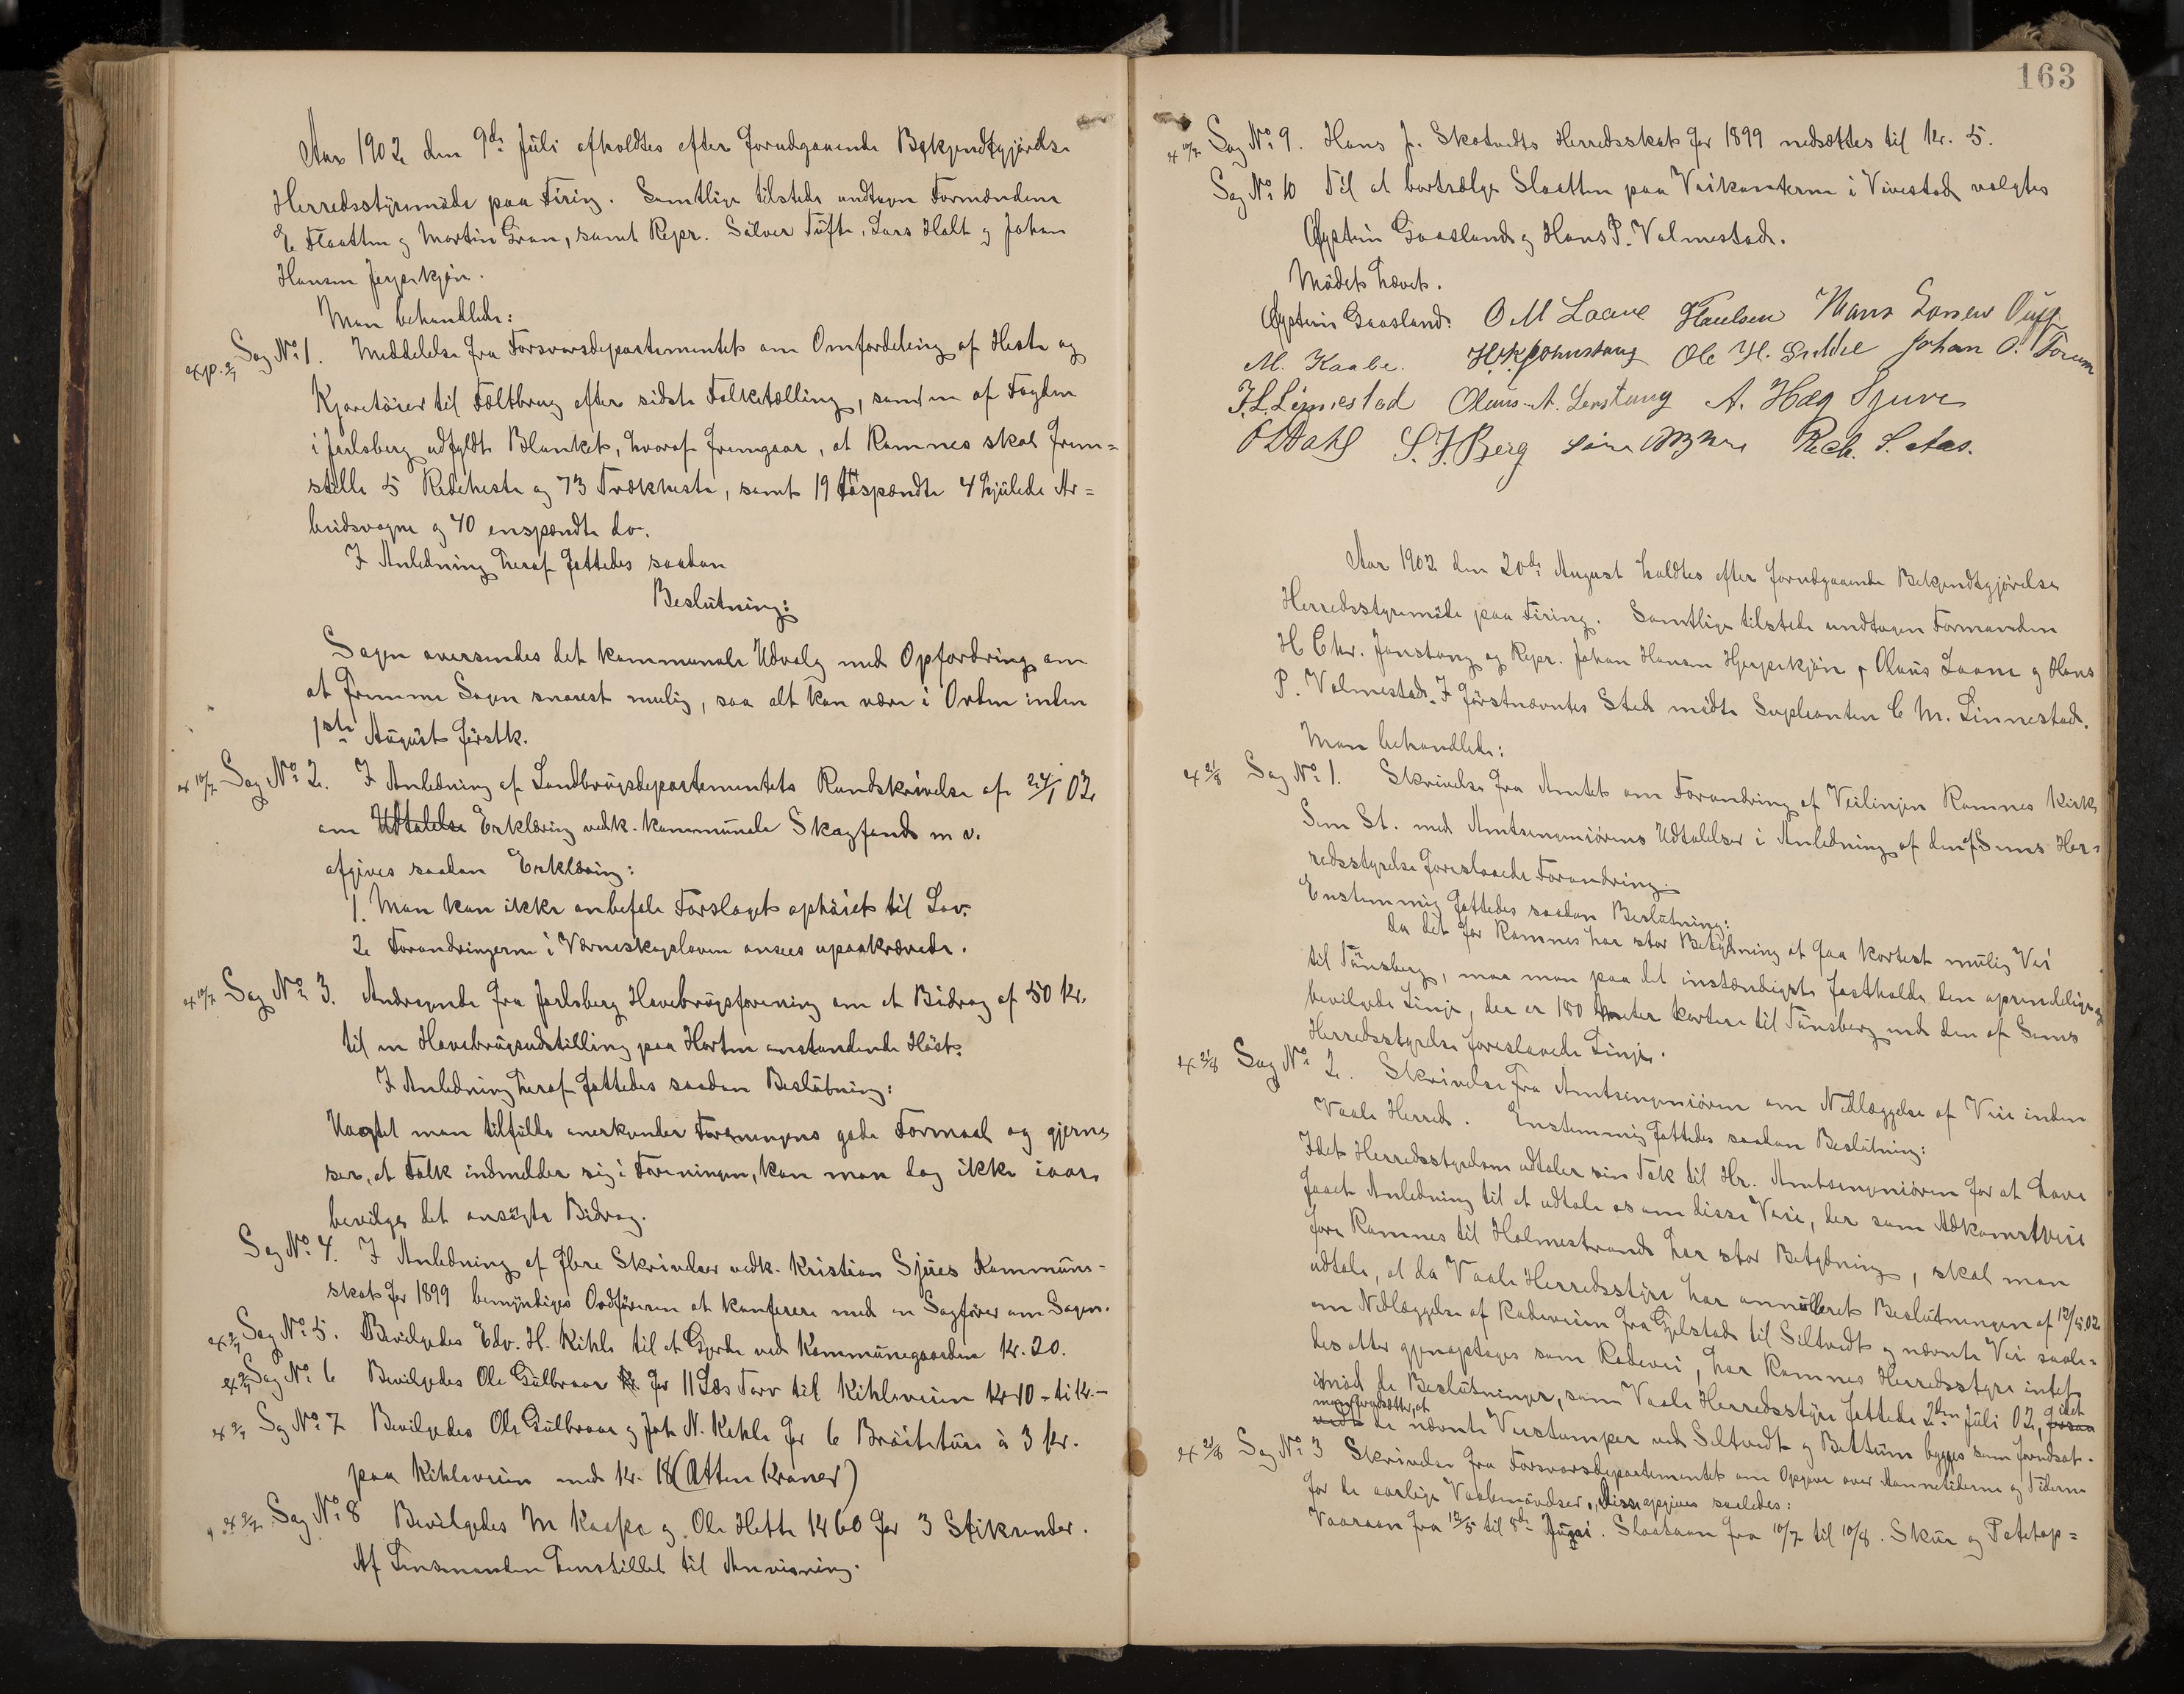 Aar 1902 den 9de Juli afholdtes efter forudgaaende Bekjendtgjørelse
Herredsstyremøde paa Firing. Samtlige tilstede undtagen Formændene
E. Flaatten og Martin Gran, samt Repr. Sølver Tufte, Lars Holt og Johan
Hansen Jerpekjøn.
Man behandlede:
exp. Sag No 1. Meddelelse fra Forsvarsdepartementet om Omfordeling af Heste og
Kjøretøier til Feltbrug efter sidste Folketælling, samt en af Fogden
i Jarlsberg udfyldt Blanket, hvoraf fremgaar, at Ramnes skal frem=
stille 5 Rideheste og 73 Trækheste, samt 19 tospændte 4 hjulede Ar=
beidsvogne og 40 enspændte do.
I Anledning heraf fattedes saadan
Beslutning:
Sagen oversendes det kommunale Udvalg med Opfordring om
at fremme Sagen snarest mulig, saa alt kan være i Orden inden
1ste August førstk.
ex 10/7 Sag No 2. I Anledning af Landbrugsdepartementets Rundskrivelse af 24/1 02
om Udtalelse Erklæring vedk. kommunale Skogfond m v.
afgives saadan Erklæring:
1. Man kan ikke anbefale Forslaget ophøiet til Lov.
2. Forandringerne i Værneskogsloven ansees upaakrævede.
ex 10/7 Sag No 3. Andragende fra Jarlsberg Havebrugsforening om et Bidrag af 50 Kr.
til en Havebrugsudstilling paa Horten anstundende Høst.
I Anledning heraf fattedes saadan Beslutning:
Uagtet man tilfulde anerkjender Foreningens gode Formaal og gjerne
ser, at Folk indmelder sig i Foreningen, kan man dog ikke iaar
bevilge det ansøgte Bidrag.
Sag No 4. I Anledning af flere Skrivelser vedk. Kristian Sjues Kommune-
skat for 1899 bemyndiges Ordføreren at konferere med en Sagfører om Sagen.
Sag No 5. Bevilgedes Edv. H. Kihle til et Gjerde ved Kommunegaarden Kr. 20.
Sag No 6 Bevilgedes Ole Gulbraar for 11 Læs Torv til Kihleveien Kr 10 - ti Kr. -
Sag No 7 Bevilgedes Ole Gulbraar og Joh N. Kihle for 6 Brøiteture à 3 Kr.
paa Kihleveien med Kr. 18 (Atten Kroner)
Sag No 8 Bevilgedes M Kaape og Ole Hette Kr 60 for 3 Stikrender.
Af Lensmanden henstillet til Anvisning.
163
ex 10/7 Sag No 9. Hans J. Skotvedts Herredsskat for 1899 nedsættes til Kr. 5.
Sag No 10 Til at bortsælge Slaatten paa Veikanterne i Vivestad valgtes
Øystein Gaasland og Hans P. Valmestad.
Mødet hævet.
Øystein Gaasland. O M Laane Paulsen Hans
M. Kaabe. Ole H. Johan O.
Linnestad Olaus A. A. Høg Sjuve
O Dahl S. J. Berg Rich. S. Aas.
Aar 1902 den 20de August holdtes efter forudgaaende Bekjendtgjørelse
Herredsstyremøde paa Firing. Samtlige tilstede undtagen Formanden
H Chr. Jonstang og Repr. Johan Hansen Hjerpekjøn, Olaus Laane og Hans
P. Valmestad. I Førstnævntes Sted mødte Supleanten C M. Linnestad.
Man behandlede:
ex 21/8 Sag No 1. Skrivelse fra Amtet om Forandring af Veilinjen Ramnes Kirke
Sem St. med Amtsingeniørens Udtalelser i Anledning af den af Sems Her=
redsstyrelse foreslaaede Forandring.
Enstemmig fattedes saadan Beslutning:
Da det for Ramnes har stor Betydning at faa kortest mulig Vei
til Tønsberg, maa man paa det instændigste fastholde den oprindelige og
bevilgede Linje, der er 180 meter kortere til Tønsberg end den af Sems
Herredsstyrelse foreslaaede Linje.
ex 21/8 Sag No 2. Skrivelse fra Amtsingeniøren om Nedlæggelse af Veie inden
Vaale Herred. Enstemmig fattedes saadan Beslutning:
Idet Herredsstyrelsen udtaler sin Tak til Hr. Amtsingeniøren for at have
faaet Anledning til at udtale os om disse Veie, der som Adkomstveie
fore Ramnes til Holmestrand har stor Betydning, skal man
udtale, at da Vaale Herredsstyre har annulleret Beslutningen af 12/4 02
om Nedlæggelse af Rodeveien fra Gjelstad til Seltvedt og nævnte Vei saale=
des atter gjenoptages som Rodevei, har Ramnes Herredsstyre intet
imod de Beslutninger, som Vaale Herredsstyre fattede 2den Juli 02, idet
man forudsætter, at
de nævnte Veistumper ved Seltvedt og Bettum bygges som forudsat.
ex 21/8 Sag No 3 Skrivelse fra Forsvarsdepartementet om Opgave over Aannetiderne og Tiderne
for de aarlige Vaabenøvelser. Disse opgives saaledes:
Vaaraan fra 12/5 til 8de Juni. Slaataan fra 10/7 til 10/8. Skur og Potetop=